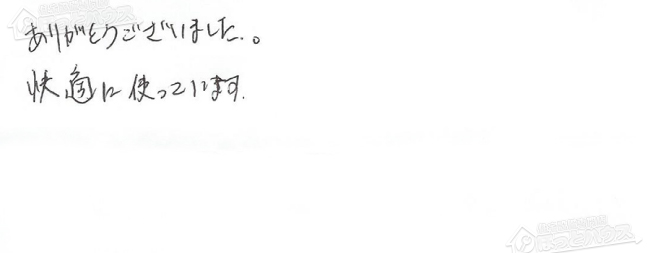 ありがとうございました。
快適に使っています.